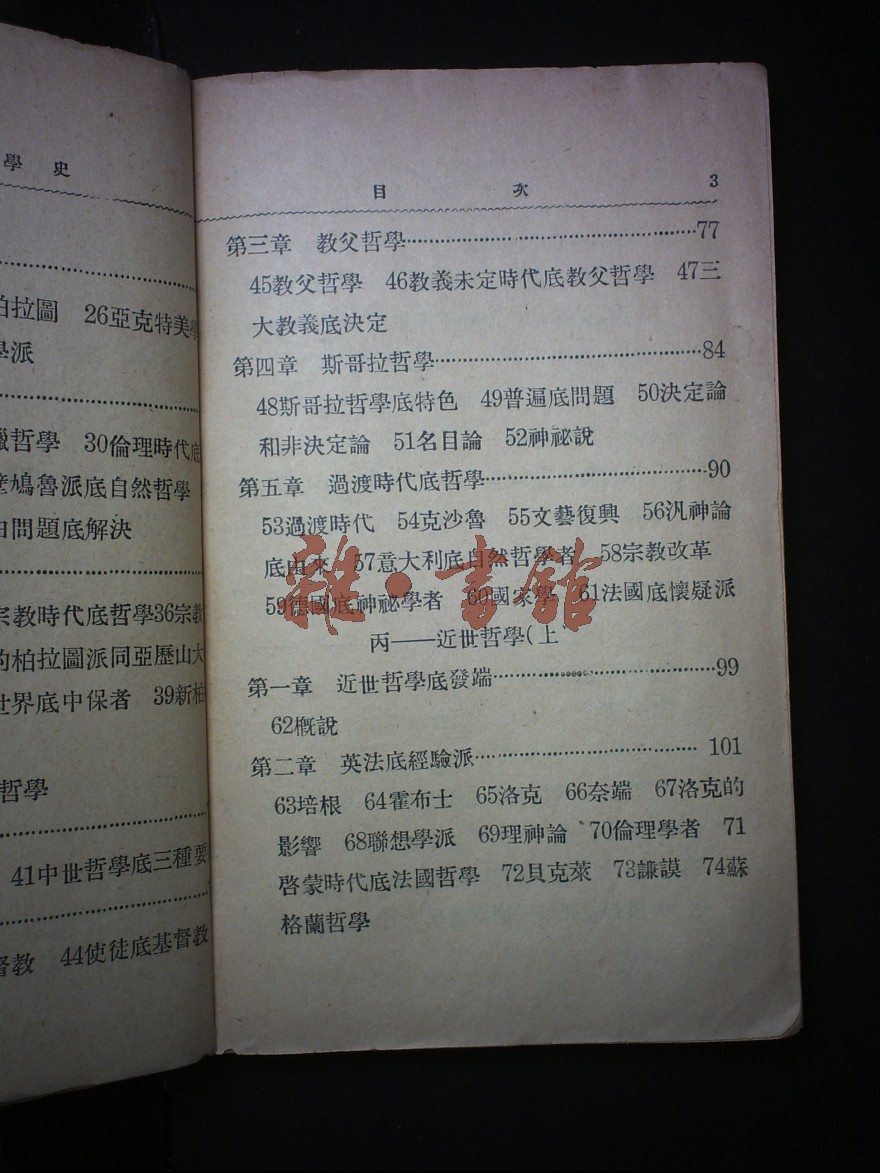 學 史
柏拉圖 26亞克特美學
學派
哲學 30倫理時代底
鳩魯派底自然哲學
由問題底解決
宗教時代底哲學36宗教
的柏拉圖派同亞歷山大
世界底中保者 39新柏
哲學
41中世哲學底三種要
督教 44使徒底基督教
目 次 3
第三章 教父哲學………77
45教父哲學 46教義未定時代底教父哲學 47三
大教義底決定
第四章 斯哥拉哲學………84
48斯哥拉哲學底特色 49普遍底問題 50決定論
和非決定論 51名目論 52神祕說
第五章 過渡時代底哲學………90
53過渡時代 54克沙魯 55文藝復興 56汎神論
底由來 57意大利底自然哲學者 58宗教改革
59德國底神祕學者 60國家學 61法國底懷疑派
丙——近世哲學(上
第一章 近世哲學底發端………99
62概說
第二章 英法底經驗派………101
63培根 64霍布士 65洛克 66奈端 67洛克的
影響 68聯想學派 69理神論 70倫理學者 71
啓蒙時代底法國哲學 72貝克萊 73謙謨 74蘇
格蘭哲學
雜·書館